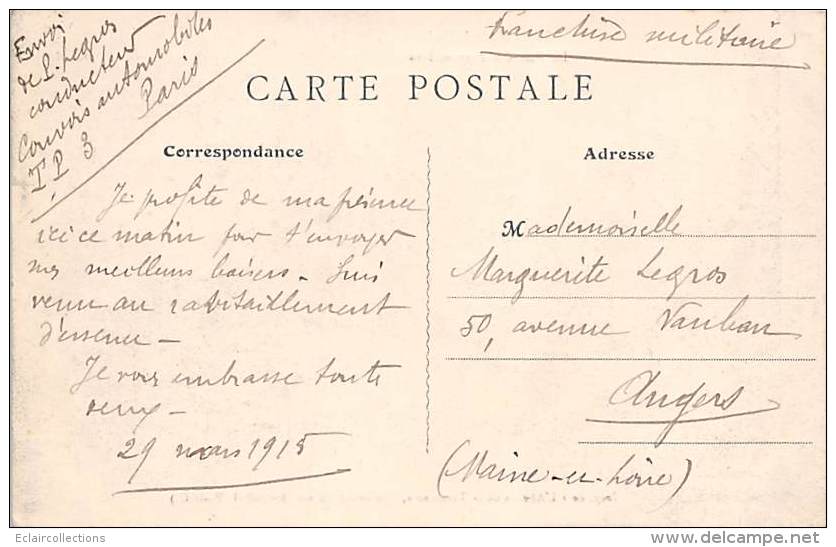 Envoi
de L. Legros
conducteur
Convois automobiles
T P 3 Paris
Franchise militaire
CARTE POSTALE
Correspondance
Adresse
Je profite de ma présence
ici ce matin pour t'envoyer
mes meilleurs baisers - Suis
venu au ravitaillement
d'essence -
Je vous embrasse toute
deux -
29 mars 1915
Mademoiselle
Marguerite Legros
50, avenue Vauban
Angers
(Maine-et-Loire)
Eclaircollections
delcampe.net